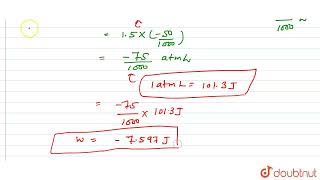 1000
= 1.5 × (-50/1000)
= -75/1000 atm L
1 atm L = 101.3 J
= -75/1000 × 101.3 J
w = - 7.597 J
doubtnut